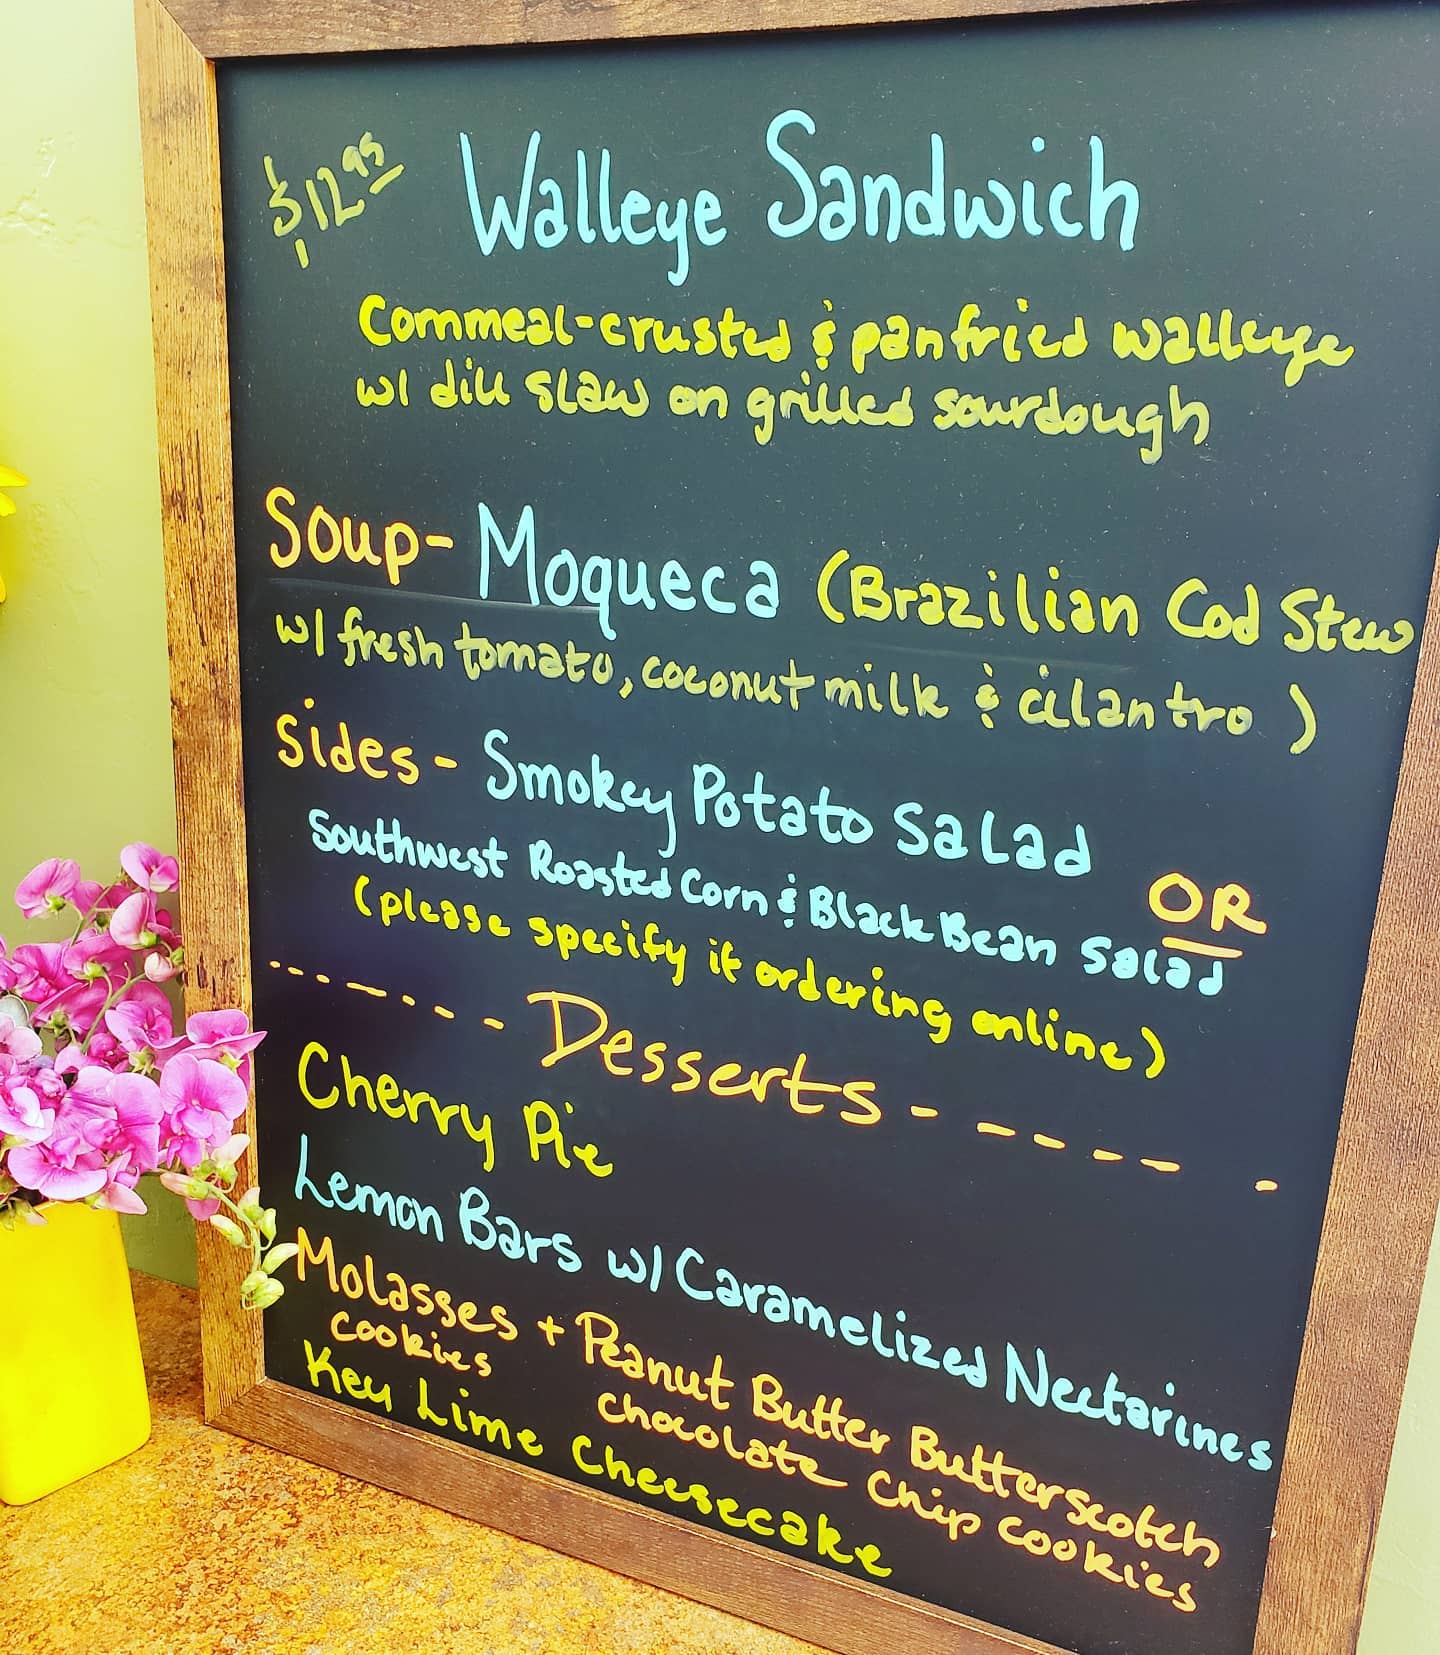 $12.95 Walleye Sandwich
Cornmeal-crusted & panfried walleye
w/ dill slaw on grilled sourdough
Soup- Moqueca (Brazilian Cod Stew
w/ fresh tomato, coconut milk & cilantro)
Sides- Smokey Potato Salad OR
Southwest Roasted Corn & Black Bean Salad
(please specify if ordering online)
Desserts
Cherry Pie
Lemon Bars w/ Caramelized Nectarines
Molasses + Peanut Butter Butterscotch
cookies chocolate chip cookies
Key Lime Cheesecake